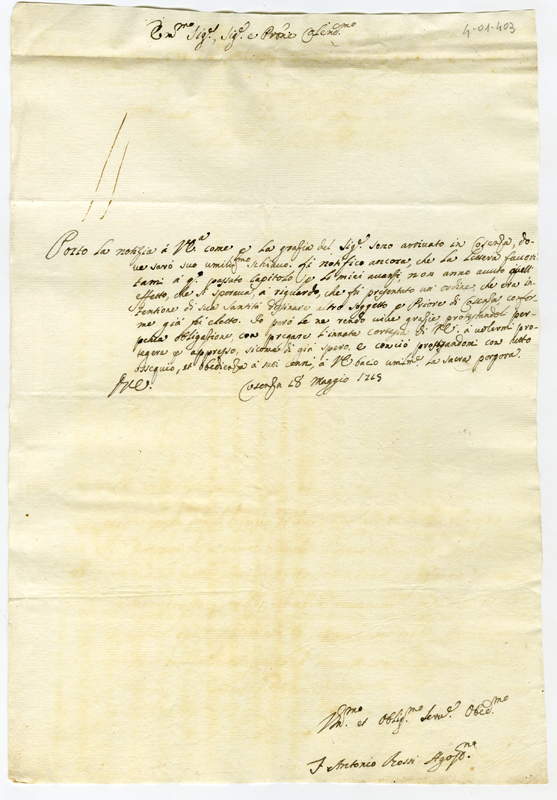 4-01-403
Em.mo Sig.r, Sig.r e Prone Colend.mo
Porto la notizia à V.E.a come p la grazia del Sig.r sono arrivato in Cosenza, do-
ve sarò suo umilis.mo schiavo. Li notifico ancora che la lettera favori-
tami à q.o passato Capitolo p li miei avanzi non anno avuto quell
effetto, che si sperava, à riguardo, che fù presentato un ordine, che era in-
tentione di sua Santità destinare altro soggetto p Priore di Cosenza confor-
me già fù eletto. Io però le ne rendo vive grazie protestandoli per-
petua obligatione, con pregare l'innata cortesia di V.E. à volermi pro-
tegere p appresso, sicome di già spero, e con ciò protestandomi con tutto
ossequio, et obedienza à suoi cenni, à V.E. bacio umilm.te la sacra porpora.
D.V.E. Cosenza 18 Maggio 1725
Um.mo et Oblig.mo Serv.e Obed.mo
F. Antonio Rossi Agost.no